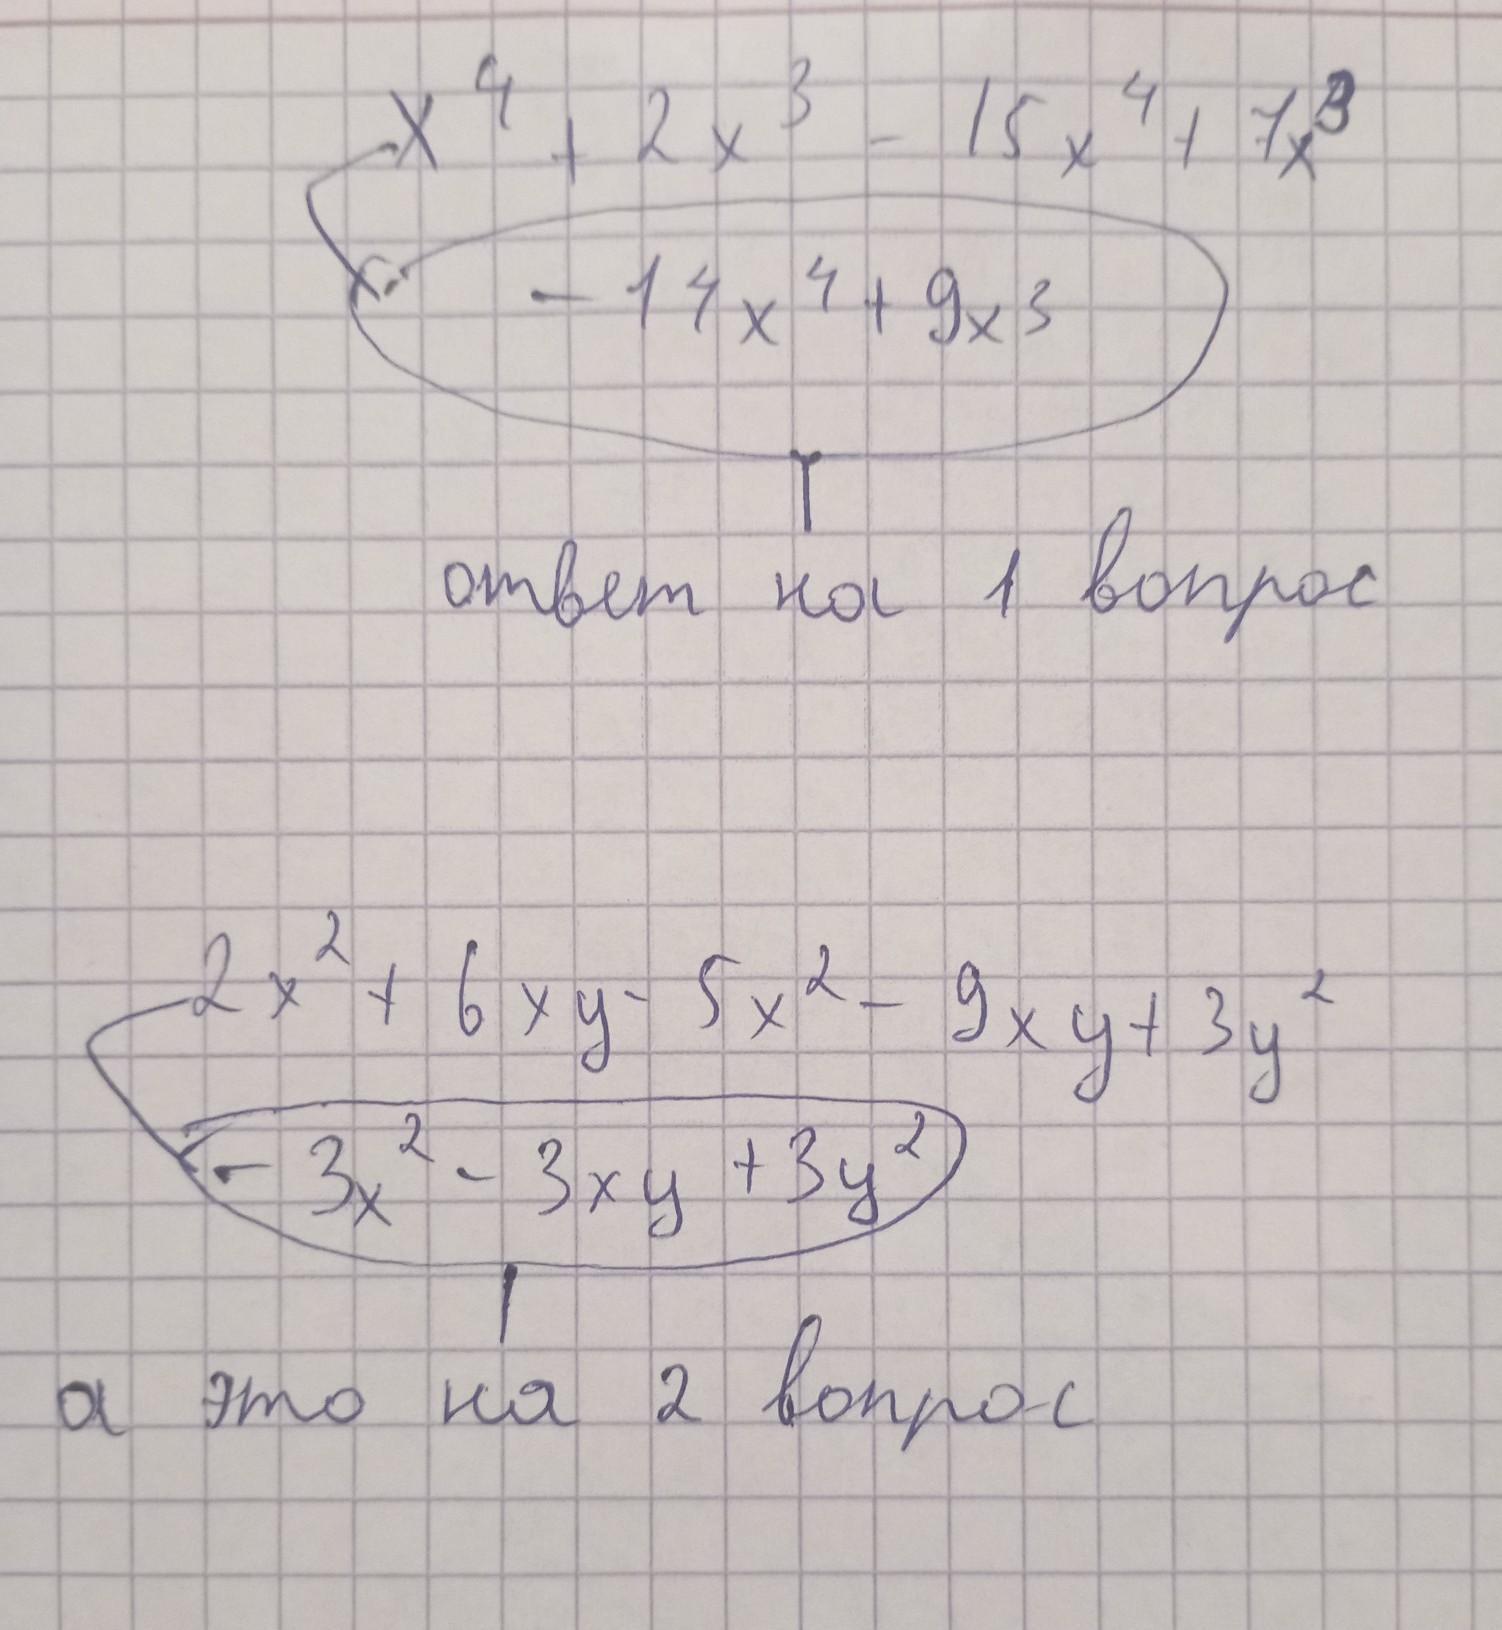 x⁴ + 2x³ - 15x⁴ + 7x³
- 14x⁴ + 9x³
ответ на 1 вопрос
2x² + 6xy - 5x² - 9xy + 3y²
- 3x² - 3xy + 3y²
а это на 2 вопрос